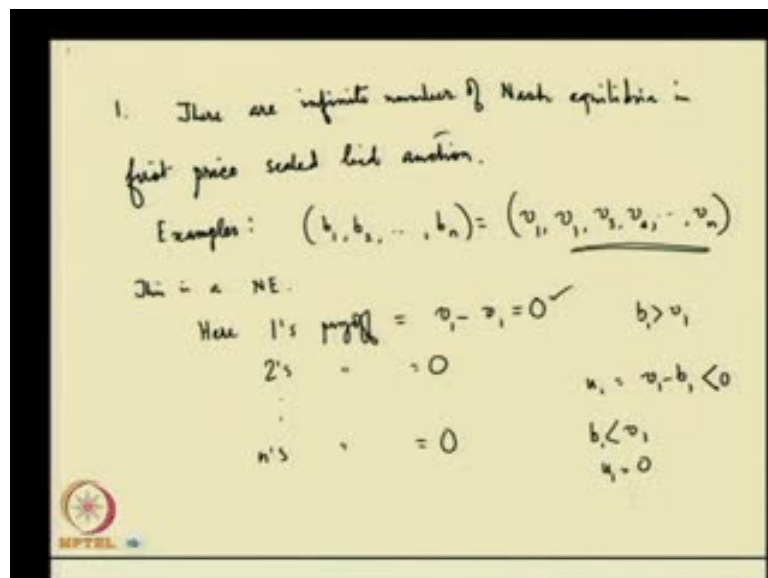 1. There are infinite number of Nash equilibria in
first price sealed bid auction.
Examples: (b₁, b₂, .., b_n) = (v₁, v₁, v₃, v₄, .., v_n)
This is a NE.
Here 1's payoff = v₁ - v₁ = 0 ✓ b₁ > v₁
2's " = 0 u₁ = v₁ - b₁ < 0
⋮
b₁ < v₁
n's " = 0 u₁ = 0
NPTEL